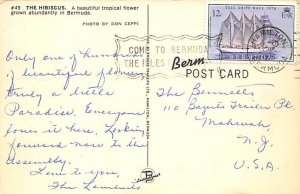 #45 THE HIBISCUS. A beautiful tropical flower
grown abundantly in Bermuda.
PHOTO BY DON CEPPI
COME TO BERMUDA
THE ISLES
TALL SHIPS RACE 1976
12c
BERMUDA
Berm
POST CARD
Only one of hundreds
of beautiful flowers
truly a little
Paradise. Everyone
loves it here. Looking
forward now to the
Assembly.
Love to you,
The Lamberts
The Bennetts
110 Bogerts Trailer Pk
Mahwah,
N.J.
U.S.A.